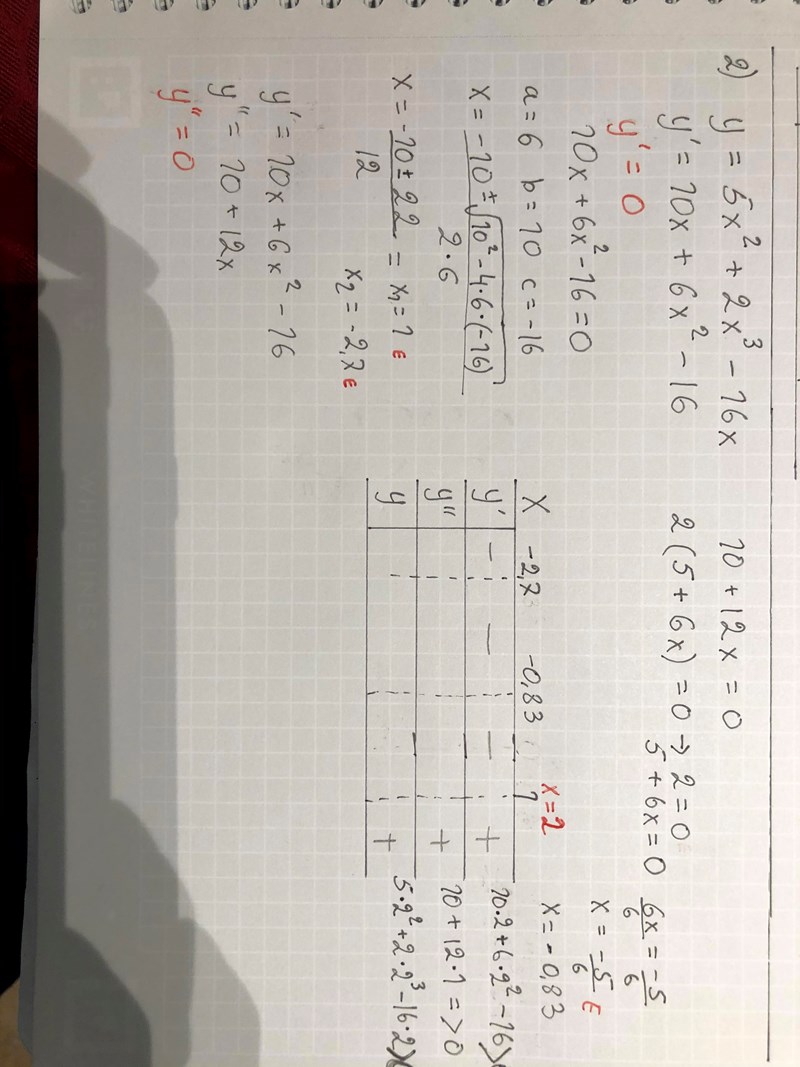 2) y = 5x² + 2x³ - 16x
y' = 10x + 6x² - 16
y' = 0
10x + 6x² - 16 = 0
a = 6 b = 10 c = -16
x = -10 ± √10² - 4·6·(-16)
2·6
x = -10 ± 22 = x₁ = 1 ∈
12
x₂ = -2,7 ∈
y' = 10x + 6x² - 16
y'' = 10 + 12x
y'' = 0
10 + 12x = 0
2(5 + 6x) = 0 → 2 = 0
5 + 6x = 0
6x = -5
6 6
x = -5 ∈
6
x = -0,83
x = 2
x -2,7 -0,83 1
y' - - - + 10·2 + 6·2² - 16 >
y'' - + 10 + 12·1 = > 0
y - + 5·2² + 2·2³ - 16·2)